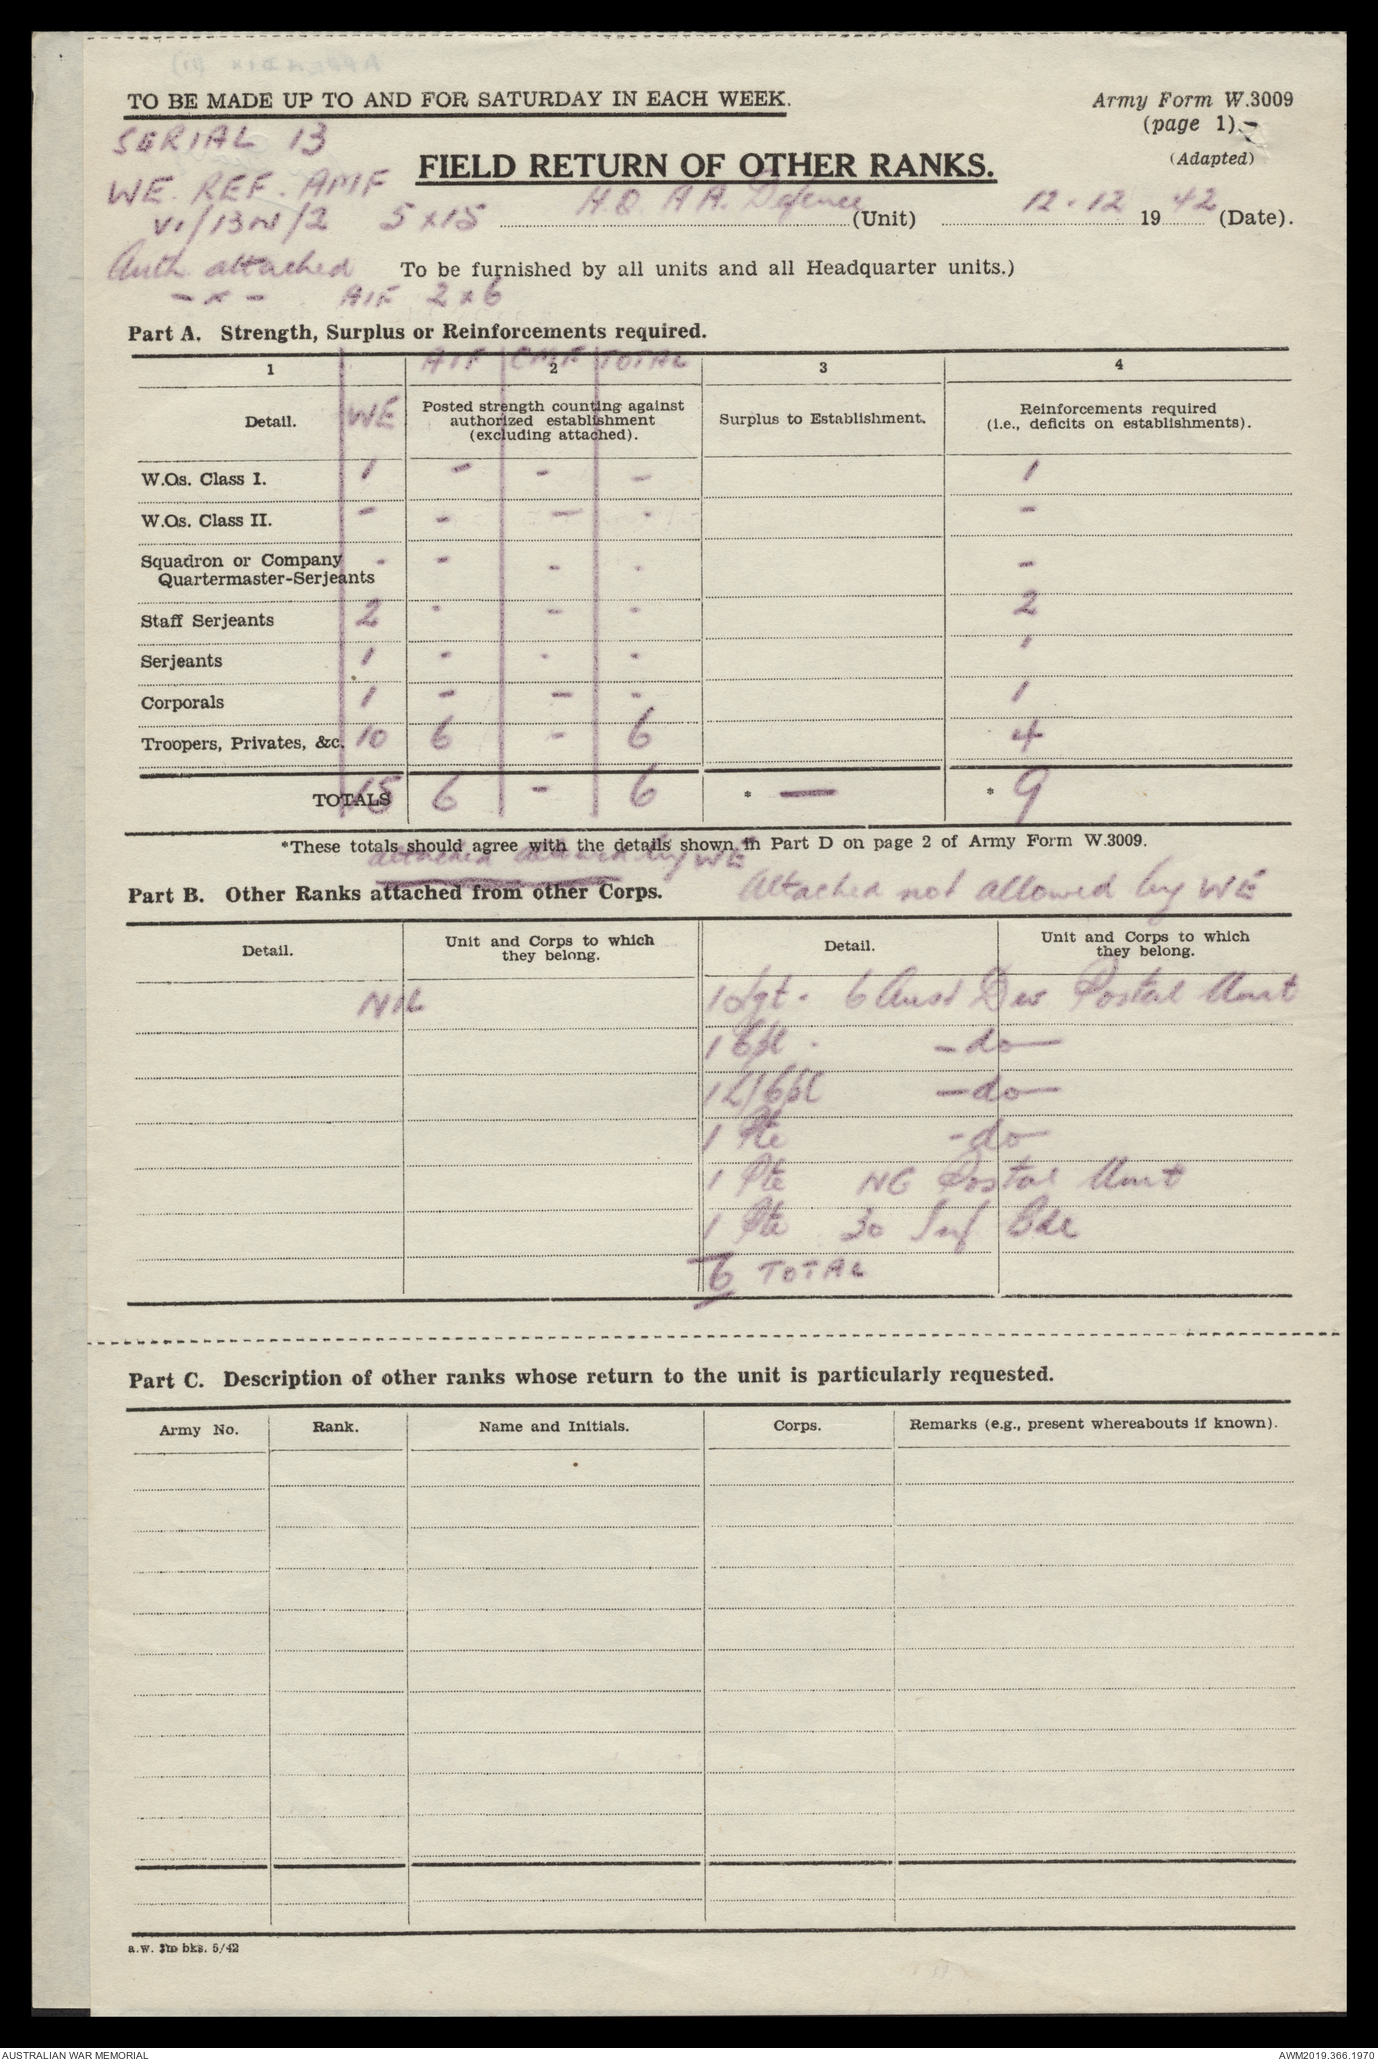 TO BE MADE UP TO AND FOR SATURDAY IN EACH WEEK.
Army Form W.3009
(page 1).
(Adapted)
SERIAL 13
FIELD RETURN OF OTHER RANKS.
WE. REF. AMF
VI/13N/2 5 x 15
H.Q. A A. Defence (Unit) 12.12 19 42 (Date).
Auth attached
To be furnished by all units and all Headquarter units.)
- x - AIF 2 x 6
Part A. Strength, Surplus or Reinforcements required.
1 AIF CMF TOTAL 2 3 4
Detail. WE Posted strength counting against authorized establishment (excluding attached). Surplus to Establishment. Reinforcements required (i.e., deficits on establishments).
W.Os. Class I. 1 - - - 1
W.Os. Class II. - - - - -
Squadron or Company Quartermaster-Serjeants - - - - -
Staff Serjeants 2 - - - 2
Serjeants 1 - - - 1
Corporals 1 - - - 1
Troopers, Privates, &c. 10 6 - 6 4
TOTALS 15 6 - 6 * — * 9
*These totals should agree with the details shown in Part D on page 2 of Army Form W.3009.
attached allowed by WE
Part B. Other Ranks attached from other Corps. Attached not allowed by WE
Detail. Unit and Corps to which they belong. Detail. Unit and Corps to which they belong.
NIL 1 Sgt. 6 Aust Div Postal Unit
1 Cpl. - do -
1 L/Cpl - do -
1 Pte - do -
1 Pte NG Postal Unit
1 Pte 30 Inf Bde
6 TOTAL
Part C. Description of other ranks whose return to the unit is particularly requested.
Army No. Rank. Name and Initials. Corps. Remarks (e.g., present whereabouts if known).
a.w. 3m bks. 5/42
AUSTRALIAN WAR MEMORIAL
AWM2019.366.1970